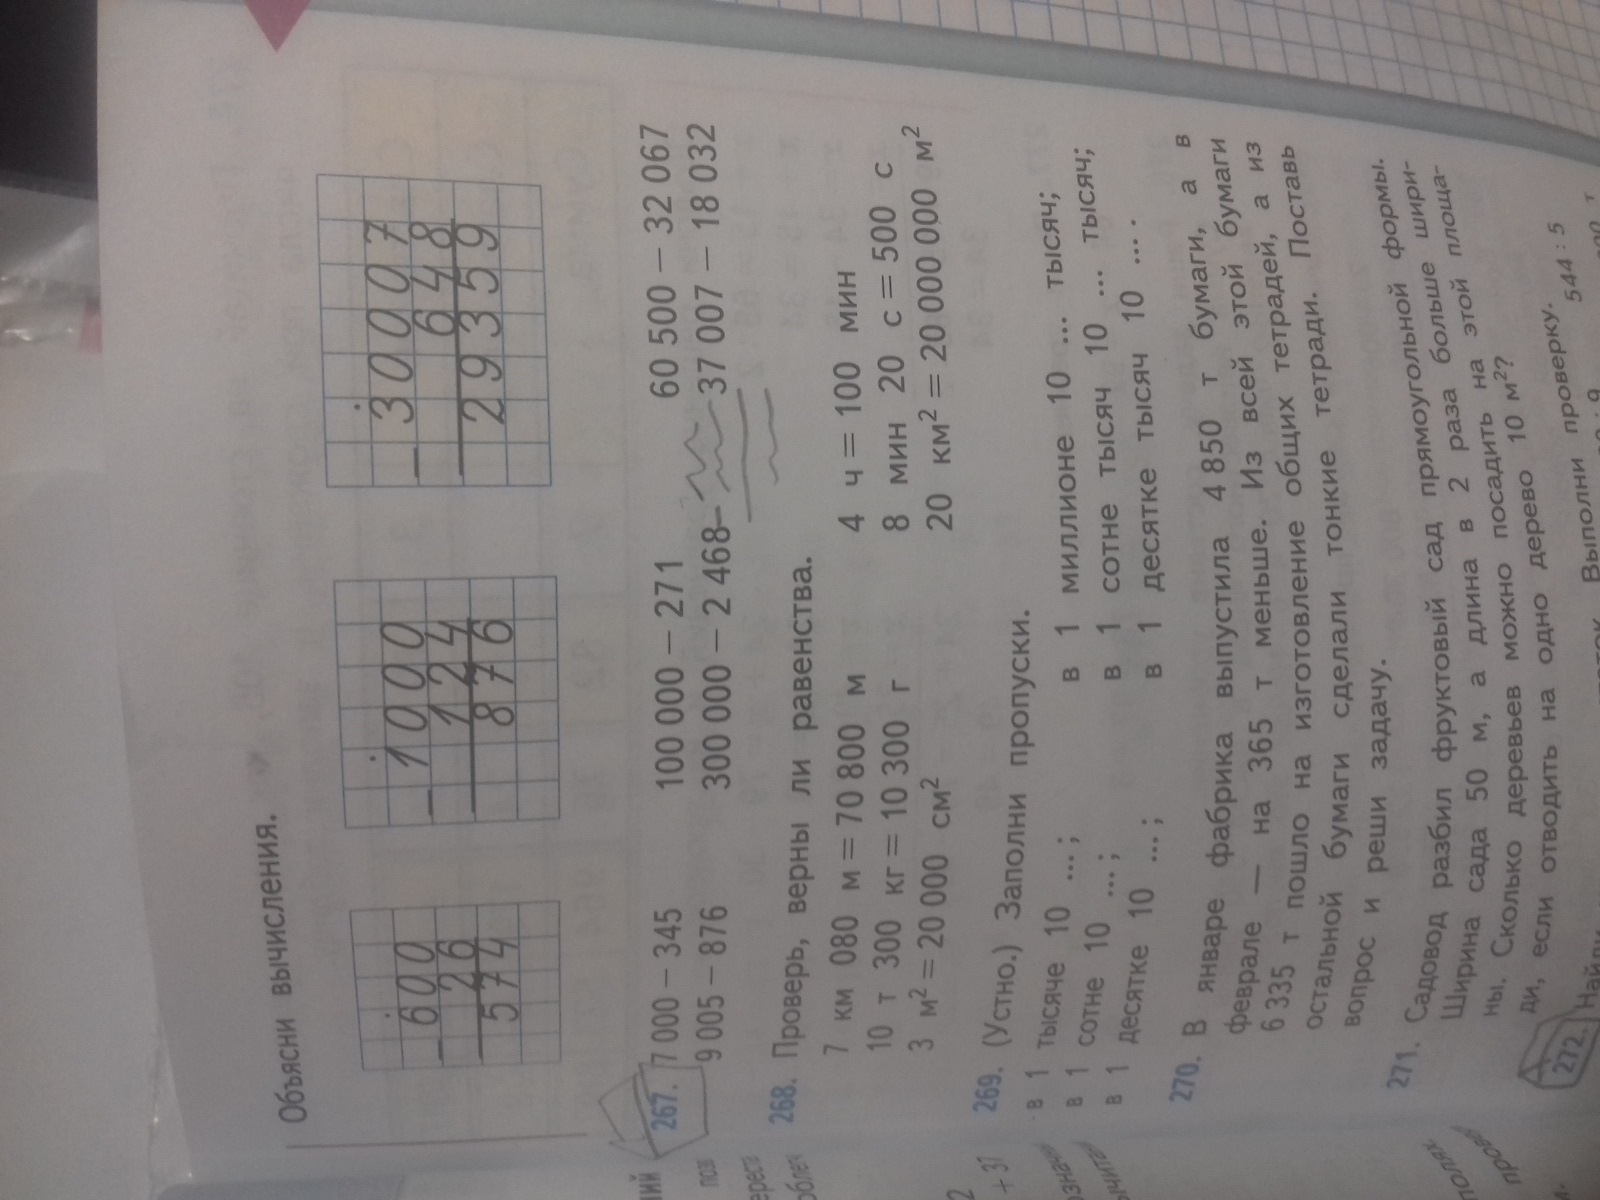 Объясни вычисления.
600
26
574
1000
124
876
30007
648
29359
267. 7 000 – 345 100 000 – 271 60 500 – 32 067
9 005 – 876 300 000 – 2 468 37 007 – 18 032
268. Проверь, верны ли равенства.
7 км 080 м = 70 800 м 4 ч = 100 мин
10 т 300 кг = 10 300 г 8 мин 20 с = 500 с
3 м² = 20 000 см² 20 км² = 20 000 000 м²
269. (Устно.) Заполни пропуски.
в 1 тысяче 10 ... ; в 1 миллионе 10 ... тысяч;
в 1 сотне 10 ... ; в 1 сотне тысяч 10 ... тысяч;
в 1 десятке 10 ... ; в 1 десятке тысяч 10 ... .
270. В январе фабрика выпустила 4 850 т бумаги, а в
феврале — на 365 т меньше. Из всей этой бумаги
6 335 т пошло на изготовление общих тетрадей, а из
остальной бумаги сделали тонкие тетради. Поставь
вопрос и реши задачу.
271. Садовод разбил фруктовый сад прямоугольной формы.
Ширина сада 50 м, а длина в 2 раза больше шири-
ны. Сколько деревьев можно посадить на этой площа-
ди, если отводить на одно дерево 10 м²?
272. Выполни проверку.
544 : 5